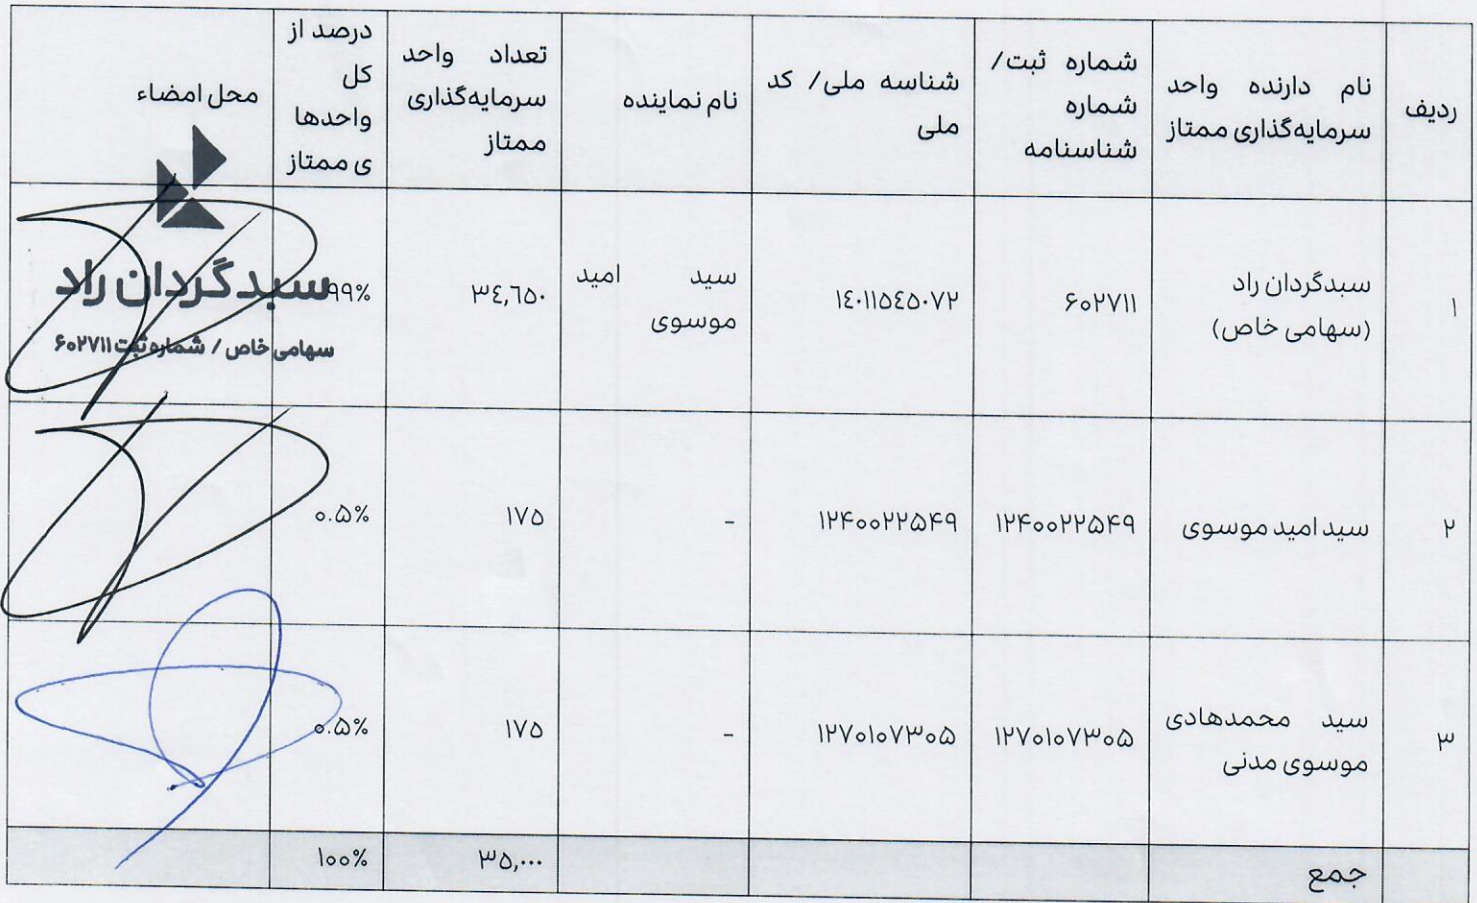 ردیف
نام دارنده واحد
سرمایه‌گذاری ممتاز
شماره ثبت/
شماره
شناسنامه
شناسه ملی/ کد
ملی
نام نماینده
تعداد واحد
سرمایه‌گذاری
ممتاز
درصد از
کل
واحدها
ی ممتاز
محل امضاء
۱
سبدگردان راد
(سهامی خاص)
۶۰۲۷۱۱
١٤٠١١٥٤٥٠٧٢
سید امید
موسوی
٣٤,٦٥٠
۹۹%
سبدگردان راد
سهامی خاص / شماره ثبت ۶۰۲۷۱۱
۲
سید امید موسوی
۱۲۴۰۰۲۲۵۴۹
۱۲۴۰۰۲۲۵۴۹
-
۱۷۵
۰.۵%
۳
سید محمدهادی
موسوی مدنی
۱۲۷۰۱۰۷۳۰۵
۱۲۷۰۱۰۷۳۰۵
-
۱۷۵
۰.۵%
جمع
۳۵,۰۰۰
۱۰۰%